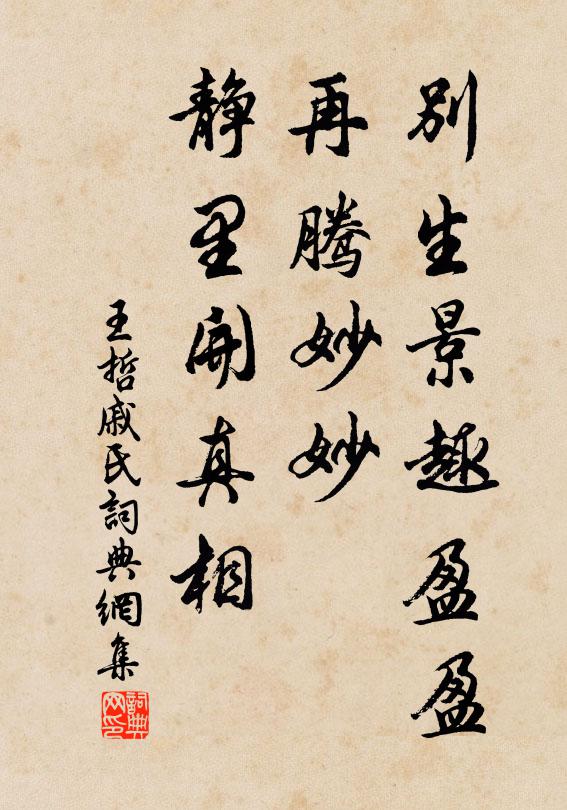 别生景趣盈盈
再腾妙妙
静里開真相
王哲戚氏詞典網集
詞典
网印